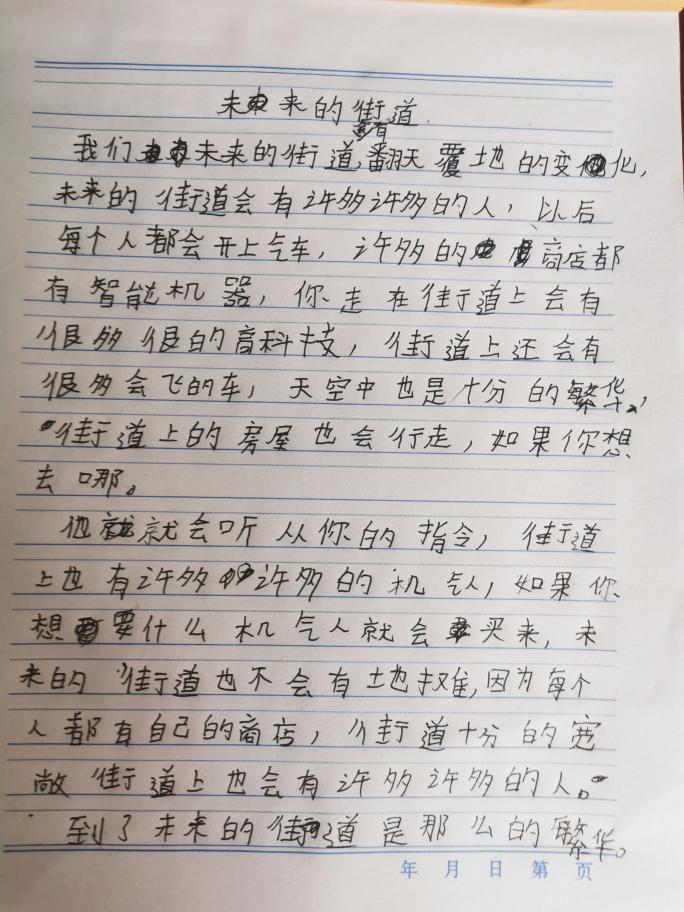 未来的街道
我们未来的街道有翻天覆地的变化,
未来的街道会有许多许多的人,以后
每个人都会开上气车,许多的商店都
有智能机器,你走在街道上会有
很多很的高科技,街道上还会有
很多会飞的车,天空中也是十分的繁华,
街道上的房屋也会行走,如果你想
去哪。
他就会听从你的指令,街道
上也有许多许多的机气人,如果你
想要什么机气人就会买来,未
来的街道也不会有地摊,因为每个
人都有自己的商店,街道十分的宽
敞街道上也会有许多许多的人。
到了未来的街道是那么的繁华。
年 月 日 第 页